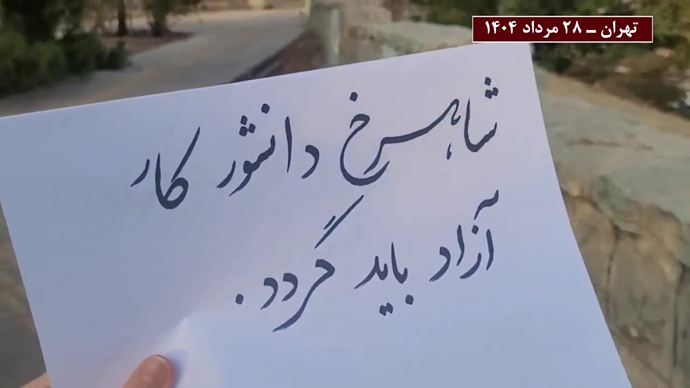 تهران ــ ۲۸ مرداد ۱۴۰۴
شاهرخ دانشور کار
آزاد باید گردد.